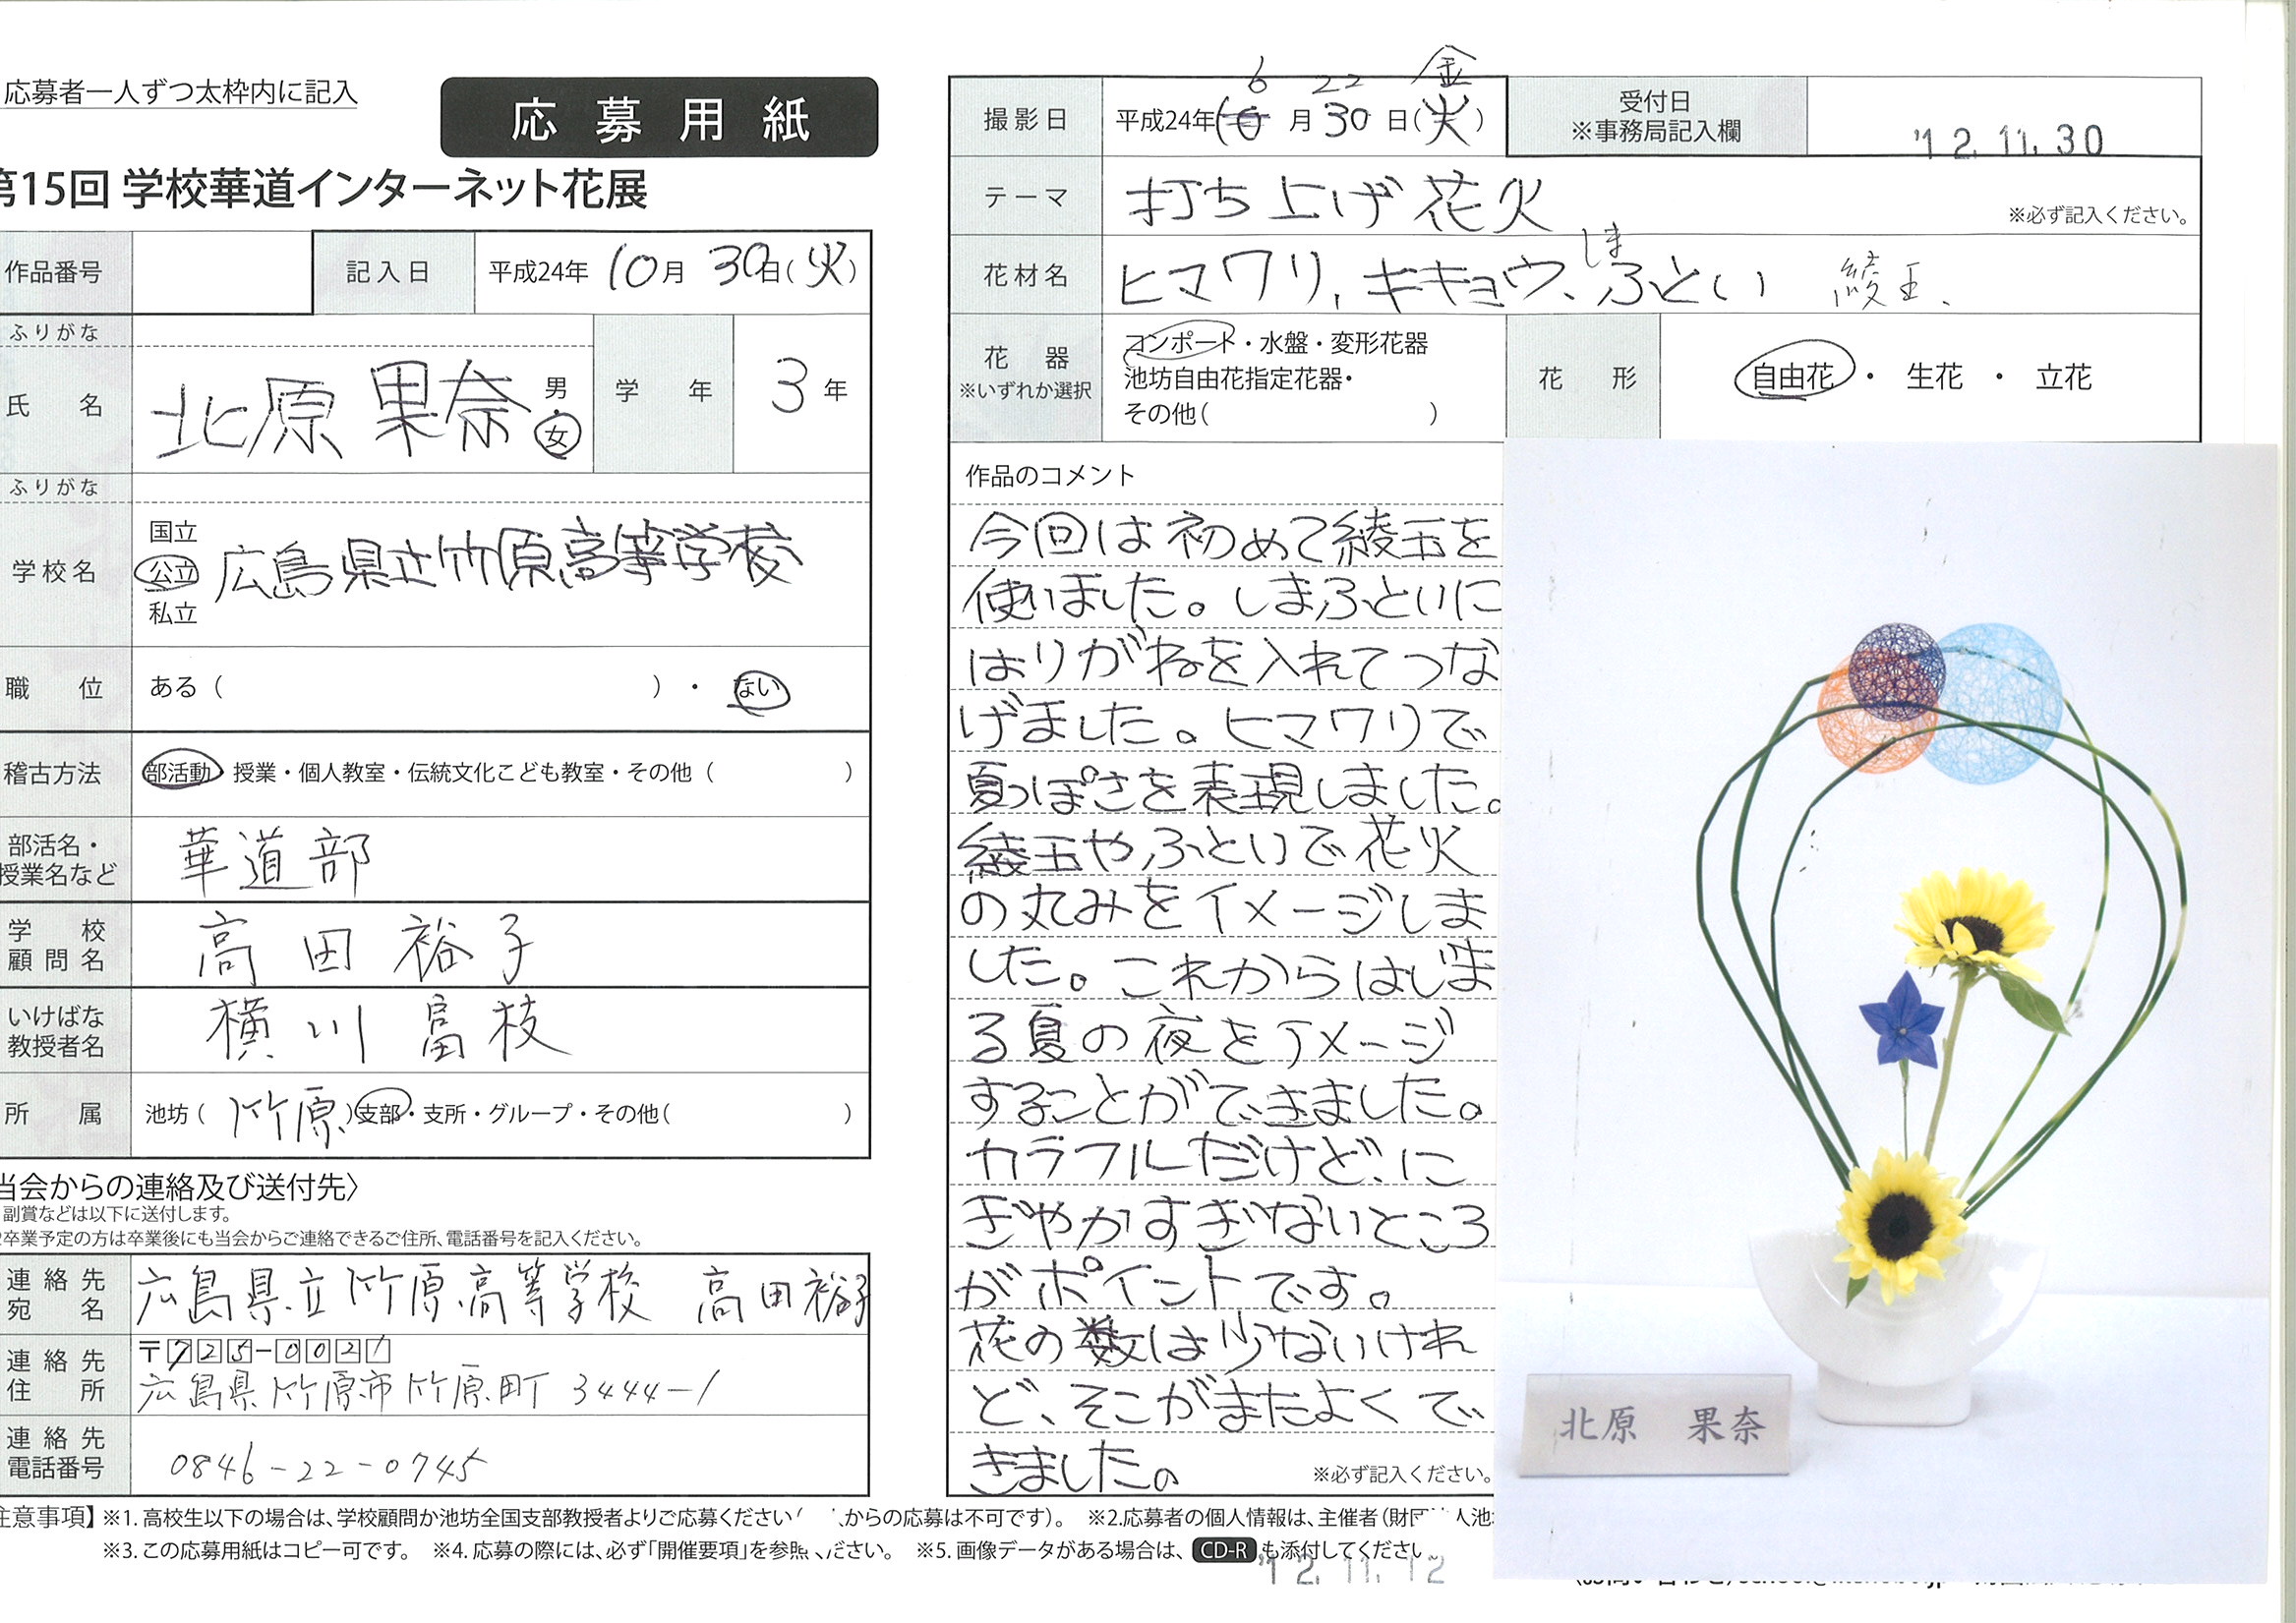 応募者一人ずつ太枠内に記入
応募用紙
第15回 学校華道インターネット花展
作品番号
記入日 平成24年 10月 30日(火)
ふりがな
氏名 北原 果奈 男 女
学年 3年
ふりがな
学校名 国立 公立 私立 広島県立竹原高等学校
職位 ある( )・ない
稽古方法 部活動・授業・個人教室・伝統文化こども教室・その他( )
部活名・授業名など 華道部
学校顧問名 高田裕子
いけばな教授者名 横川富枝
所属 池坊(竹原)支部・支所・グループ・その他( )
当会からの連絡及び送付先〉
副賞などは以下に送付します。
卒業予定の方は卒業後にも当会からご連絡できるご住所、電話番号を記入ください。
連絡先宛名 広島県立竹原高等学校 高田裕子
連絡先住所 〒725-0021
広島県竹原市竹原町3444-1
連絡先電話番号 0846-22-0745
6 22 金
撮影日 平成24年10月30日(火)
受付日 ※事務局記入欄 '12.11.30
テーマ 打ち上げ花火 ※必ず記入ください。
しま
花材名 ヒマワリ、キキョウ、ふとい 綾玉、
花器 ※いずれか選択 コンポート・水盤・変形花器
池坊自由花指定花器・
その他( )
花形 自由花・生花・立花
作品のコメント
今回は初めて綾玉を
使いました。しまふといに
はりがねを入れてつな
げました。ヒマワリで
夏っぽさを表現しました。
綾玉やふといで花火
の丸みをイメージしま
した。これからはじま
る夏の夜をイメージ
することができました。
カラフルだけど、に
ぎやかすぎないところ
がポイントです。
花の数は少ないけれ
ど、そこがまたよくで
きました。
※必ず記入ください。
北原 果奈
注意事項】※1.高校生以下の場合は、学校顧問か池坊全国支部教授者よりご応募ください( からの応募は不可です)。 ※2.応募者の個人情報は、主催者(財団 人池
※3.この応募用紙はコピー可です。 ※4.応募の際には、必ず「開催要項」を参照 ください。 ※5.画像データがある場合は、CD-Rも添付してください
'12.11.12